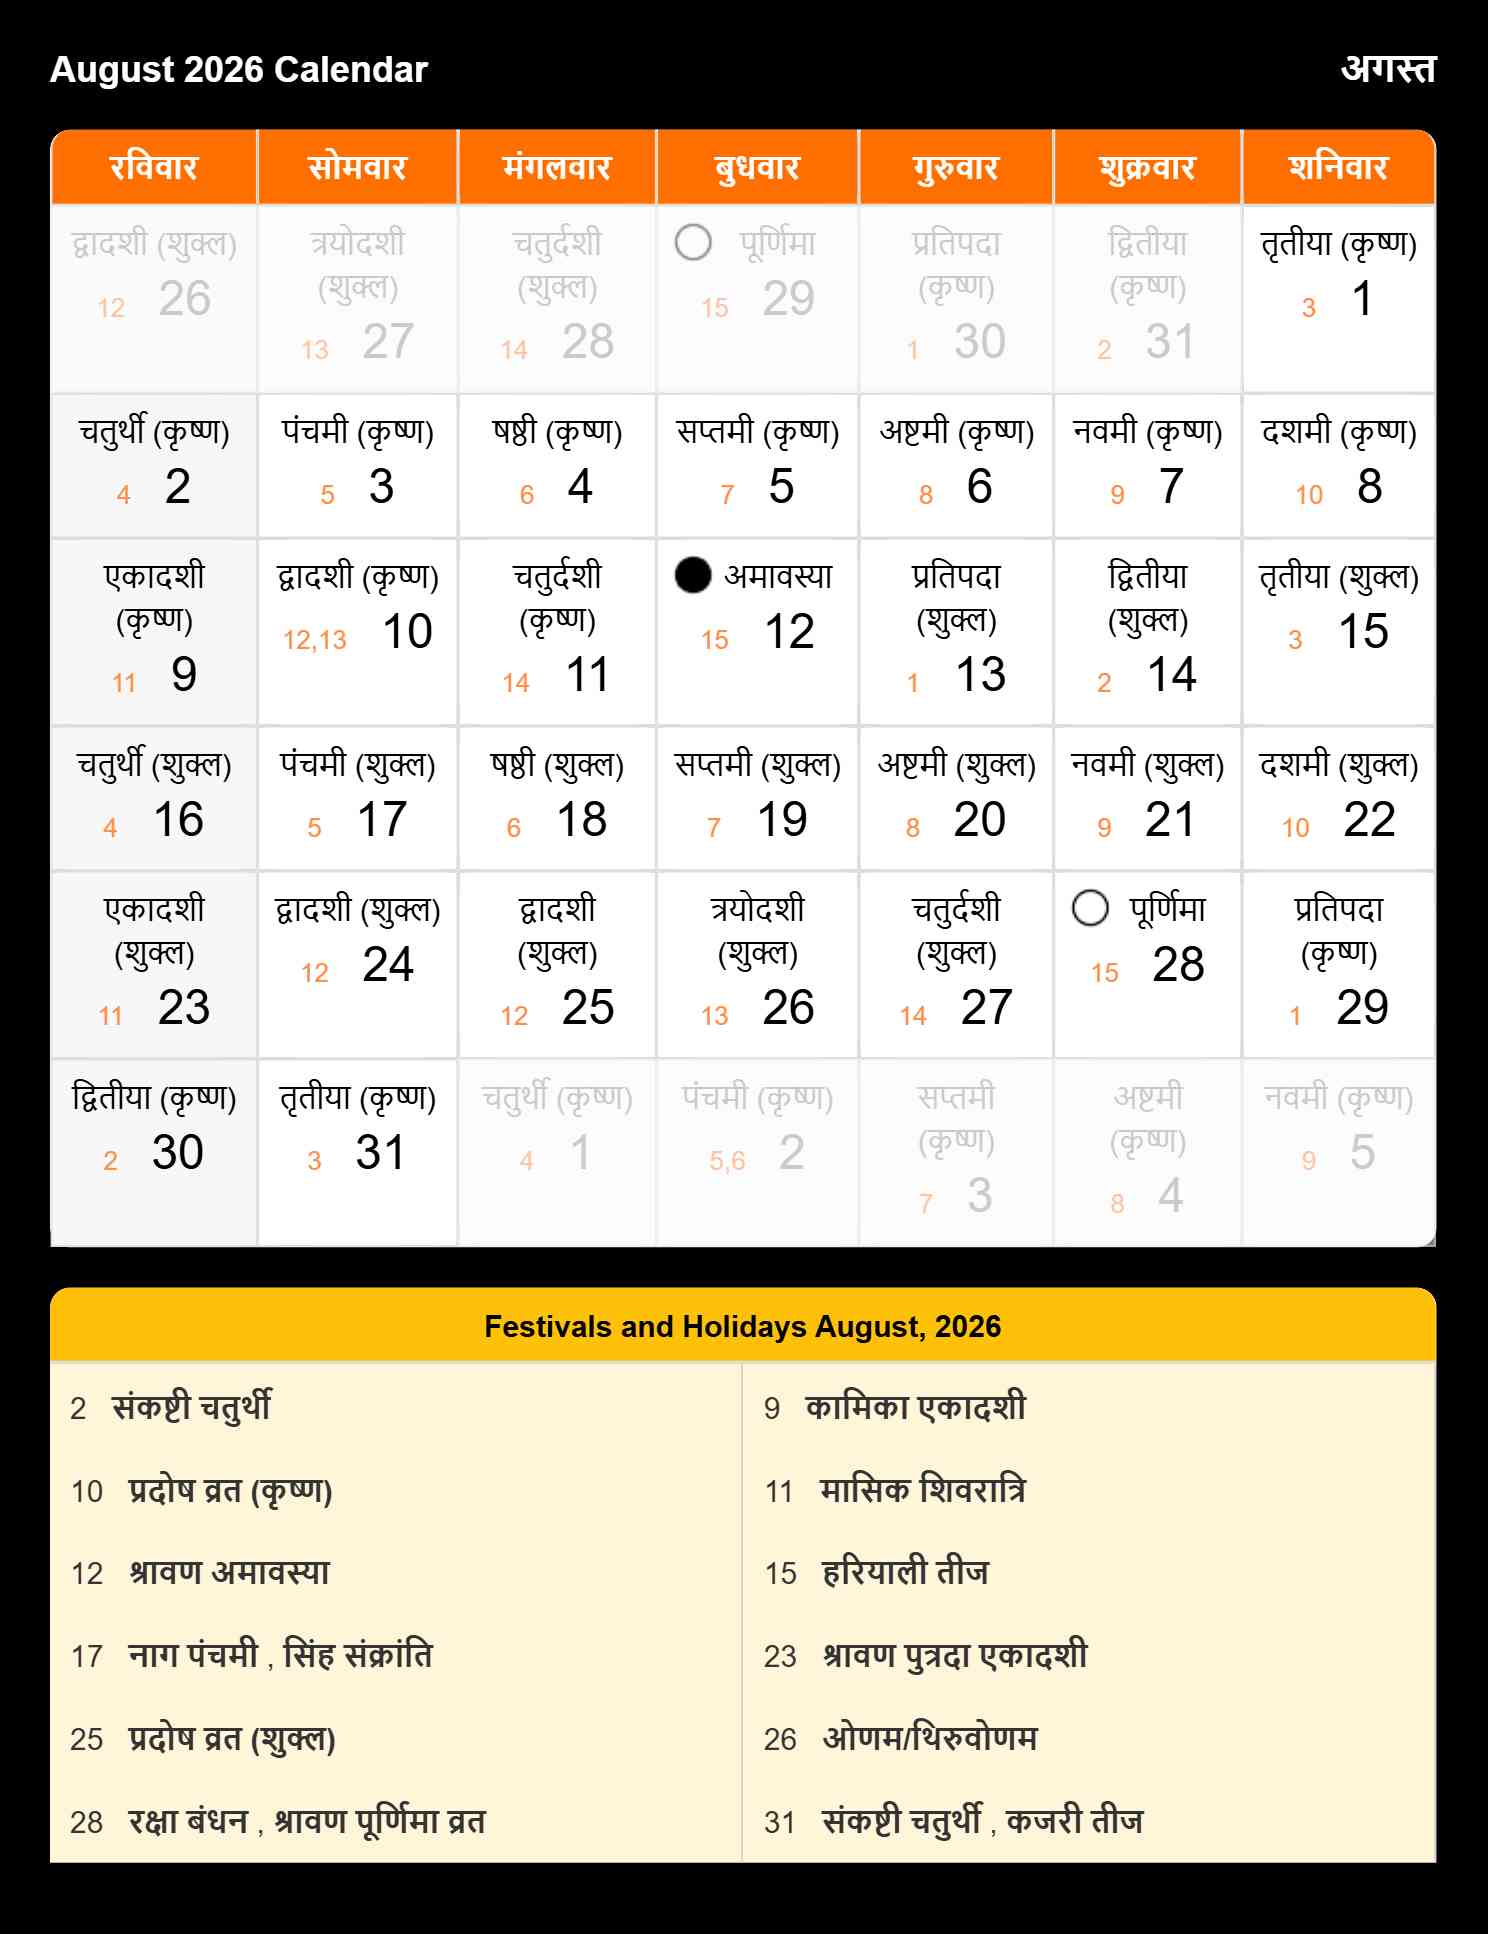 August 2026 Calendar
अगस्त
रविवार सोमवार मंगलवार बुधवार गुरुवार शुक्रवार शनिवार
द्वादशी (शुक्ल)
12 26
त्रयोदशी
(शुक्ल)
13 27
चतुर्दशी
(शुक्ल)
14 28
पूर्णिमा
15 29
प्रतिपदा
(कृष्ण)
1 30
द्वितीया
(कृष्ण)
2 31
तृतीया (कृष्ण)
3 1
चतुर्थी (कृष्ण)
4 2
पंचमी (कृष्ण)
5 3
षष्ठी (कृष्ण)
6 4
सप्तमी (कृष्ण)
7 5
अष्टमी (कृष्ण)
8 6
नवमी (कृष्ण)
9 7
दशमी (कृष्ण)
10 8
एकादशी
(कृष्ण)
11 9
द्वादशी (कृष्ण)
12,13 10
चतुर्दशी
(कृष्ण)
14 11
अमावस्या
15 12
प्रतिपदा
(शुक्ल)
1 13
द्वितीया
(शुक्ल)
2 14
तृतीया (शुक्ल)
3 15
चतुर्थी (शुक्ल)
4 16
पंचमी (शुक्ल)
5 17
षष्ठी (शुक्ल)
6 18
सप्तमी (शुक्ल)
7 19
अष्टमी (शुक्ल)
8 20
नवमी (शुक्ल)
9 21
दशमी (शुक्ल)
10 22
एकादशी
(शुक्ल)
11 23
द्वादशी (शुक्ल)
12 24
द्वादशी
(शुक्ल)
12 25
त्रयोदशी
(शुक्ल)
13 26
चतुर्दशी
(शुक्ल)
14 27
पूर्णिमा
15 28
प्रतिपदा
(कृष्ण)
1 29
द्वितीया (कृष्ण)
2 30
तृतीया (कृष्ण)
3 31
चतुर्थी (कृष्ण)
4 1
पंचमी (कृष्ण)
5,6 2
सप्तमी
(कृष्ण)
7 3
अष्टमी
(कृष्ण)
8 4
नवमी (कृष्ण)
9 5
Festivals and Holidays August, 2026
2 संकष्टी चतुर्थी
9 कामिका एकादशी
10 प्रदोष व्रत (कृष्ण)
11 मासिक शिवरात्रि
12 श्रावण अमावस्या
15 हरियाली तीज
17 नाग पंचमी , सिंह संक्रांति
23 श्रावण पुत्रदा एकादशी
25 प्रदोष व्रत (शुक्ल)
26 ओणम/थिरुवोणम
28 रक्षा बंधन , श्रावण पूर्णिमा व्रत
31 संकष्टी चतुर्थी , कजरी तीज